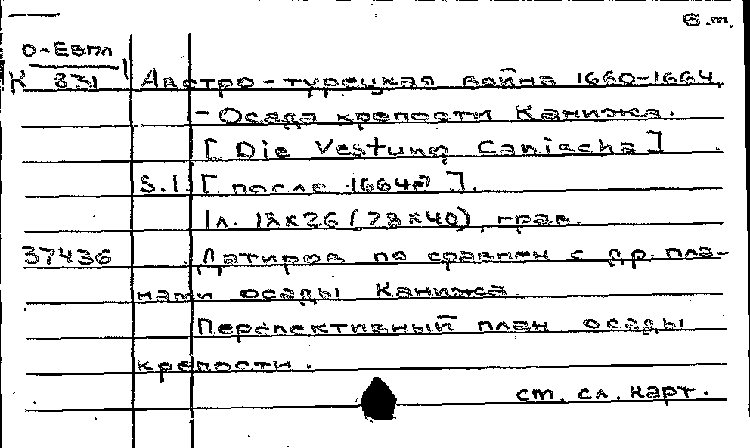 б.т.
О-Евпл
К 831 Австро-турецкая война 1660-1664.
- Осада крепости Канижа.
[Die Vestung Canischa]
S.l. [после 1664г].
1л. 18х26 (78х40) грав.
37436 Датиров. по сравнен с др. пла-
нами осады Канижа.
Перспективный план осады
крепости.
ст. сл. карт.